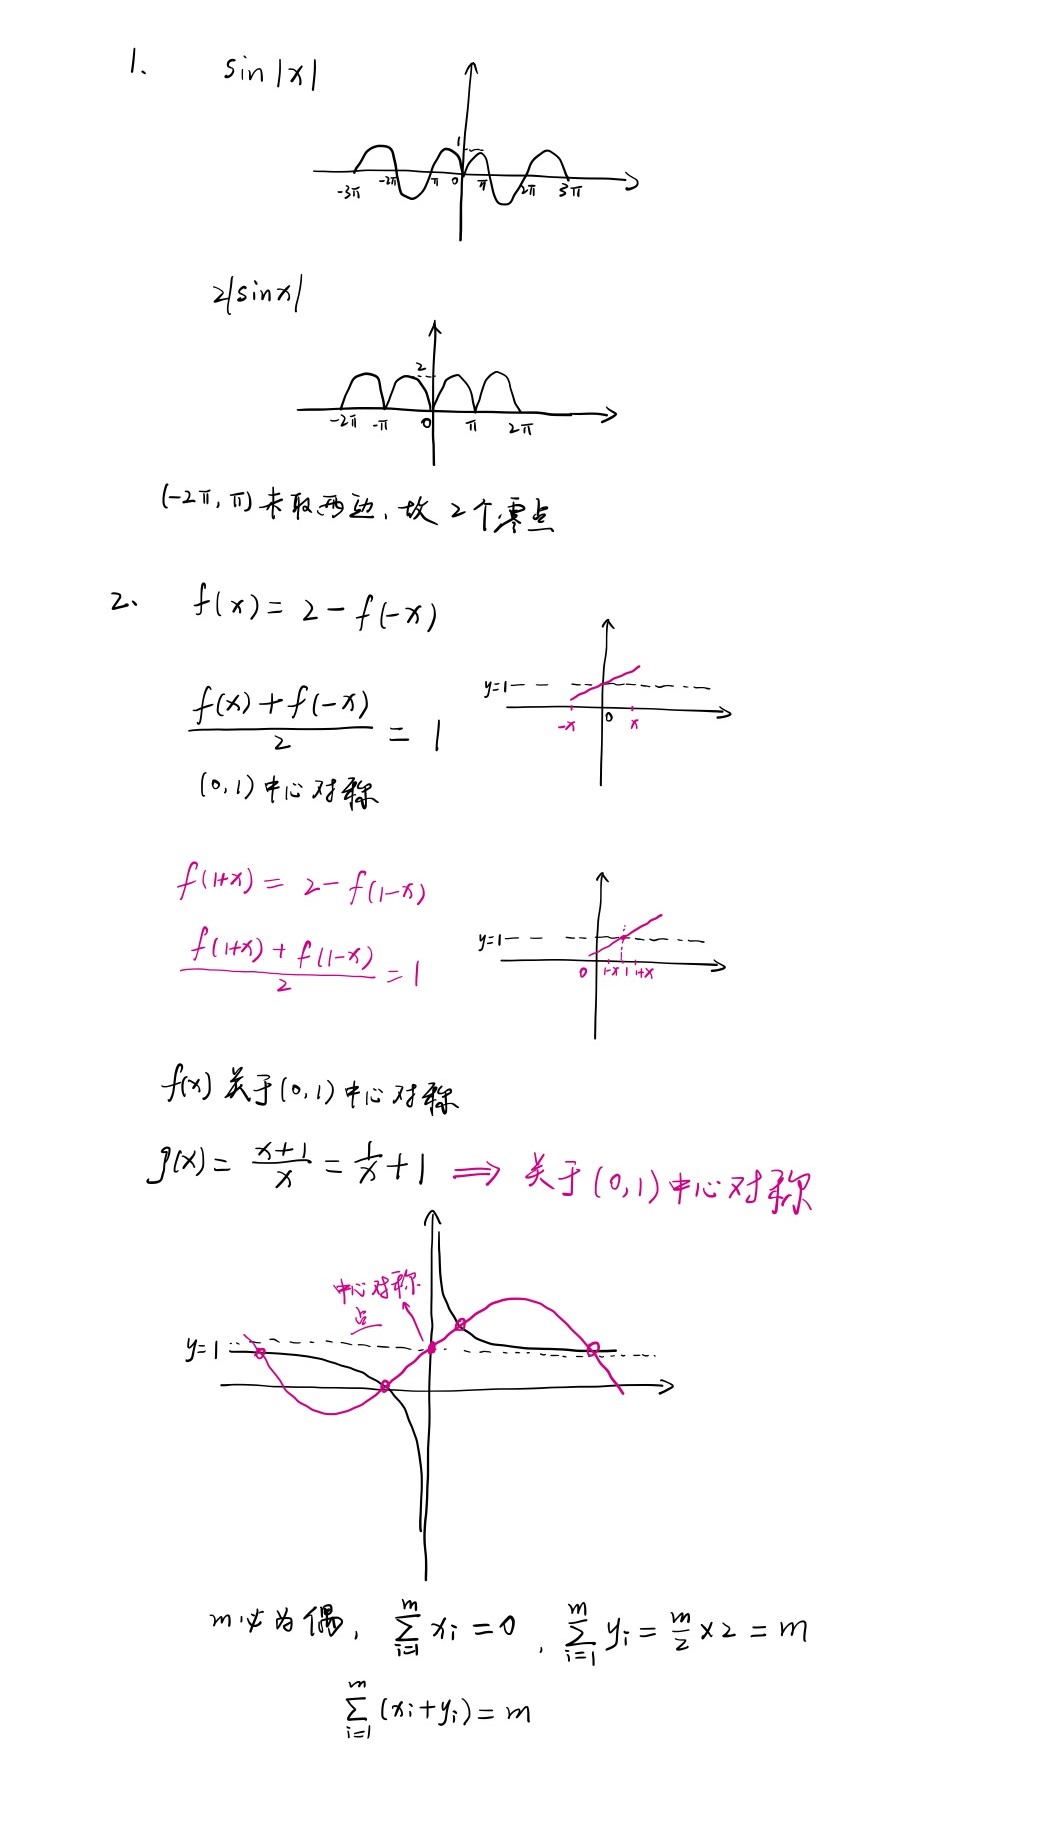 1. sin|x|
1
-3π -2π π 0 π 2π 3π
2|sinx|
2
-2π -π 0 π 2π
(-2π, π) 未取两边, 故 2个零点
2. f(x) = 2 - f(-x)
y=1
-x 0 x
(f(x) + f(-x))/2 = 1
(0,1) 中心对称
f(1+x) = 2 - f(1-x)
(f(1+x) + f(1-x))/2 = 1
y=1
0 1-x 1 1+x
f(x) 关于(0,1) 中心对称
g(x) = (x+1)/x = 1/x + 1 ⟹ 关于(0,1)中心对称
中心对称
点
y=1
m必为偶, ∑_{i=1}^{m} xi = 0, ∑_{i=1}^{m} yi = m/2 × 2 = m
∑_{i=1}^{m} (xi + yi) = m